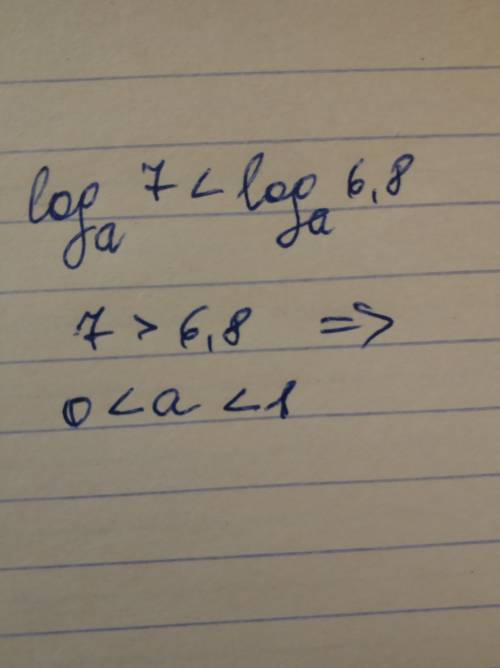 logₐ 7 < logₐ 6,8
7 > 6,8 =>
0 < a < 1